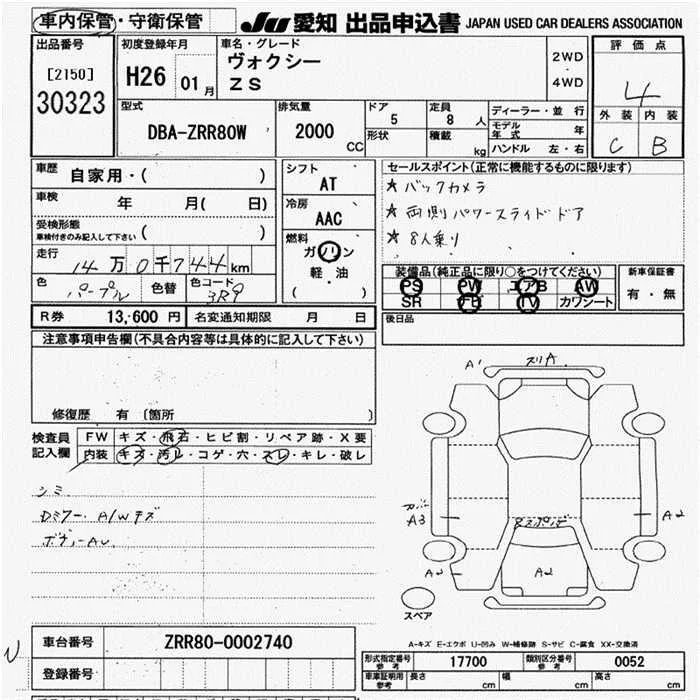 車内保管・守衛保管 JU 愛知 出品申込書 JAPAN USED CAR DEALERS ASSOCIATION
出品番号 初度登録年月 車名・グレード 評価点
[2150] H26 01月 ヴォクシー 2WD・4WD 4
30323 ZS 外装 内装
型式 排気量 ドア 定員 ディーラー・並行 C B
DBA-ZRR80W 2000CC 5 8人 モデル年式 年
形状 積載 kg ハンドル 左・右
車歴 自家用・( ) シフト AT セールスポイント(正常に機能するものに限ります)
車検 年 月( 日) 冷房 AAC ★バックカメラ
受検形態 車検付きのみ記入して下さい ( ) ★両側パワースライドドア
走行 14万0千744km 燃料 ガソリン・軽・油 ( ) ★8人乗り
色 パープル 色替 色コード 3R9 装備品(純正品に限り○をつけてください) 新車保証書
PS PW エアB AW 有・無
SR TV カワシート
R券 13,600円 名変通知期限 月 日 後日品
注意事項申告欄(不具合内容等は具体的に記入して下さい)
修復歴 有 〔箇所 〕
検査員記入欄 FW キズ・飛石・ヒビ割・リペア跡・X要
内装 キズ・汚レ・コゲ・穴・スレ・キレ・破レ
シミ
Dミラー A/Wキズ
A1 スリA
A3 A2
A2 A2
スペア
A-キズ E-エクボ U-凹み W-補修跡 S-サビ C-腐食 XX-交換済
車台番号 ZRR80-0002740
登録番号
形式指定番号 参考 17700 類別区分番号 参考 0052
車庫証明用 参考 長さ cm 幅 cm 高さ cm